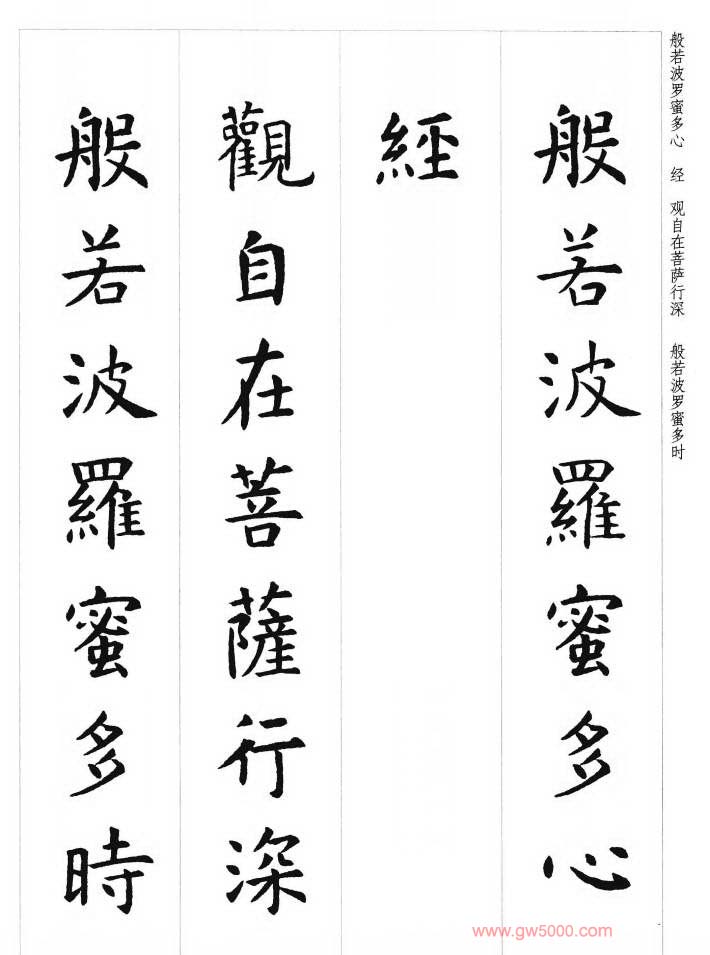 般若波罗蜜多心 经 观自在菩萨行深 般若波罗蜜多时
般若波羅蜜多心
經
觀自在菩薩行深
般若波羅蜜多時
www.gw5000.com